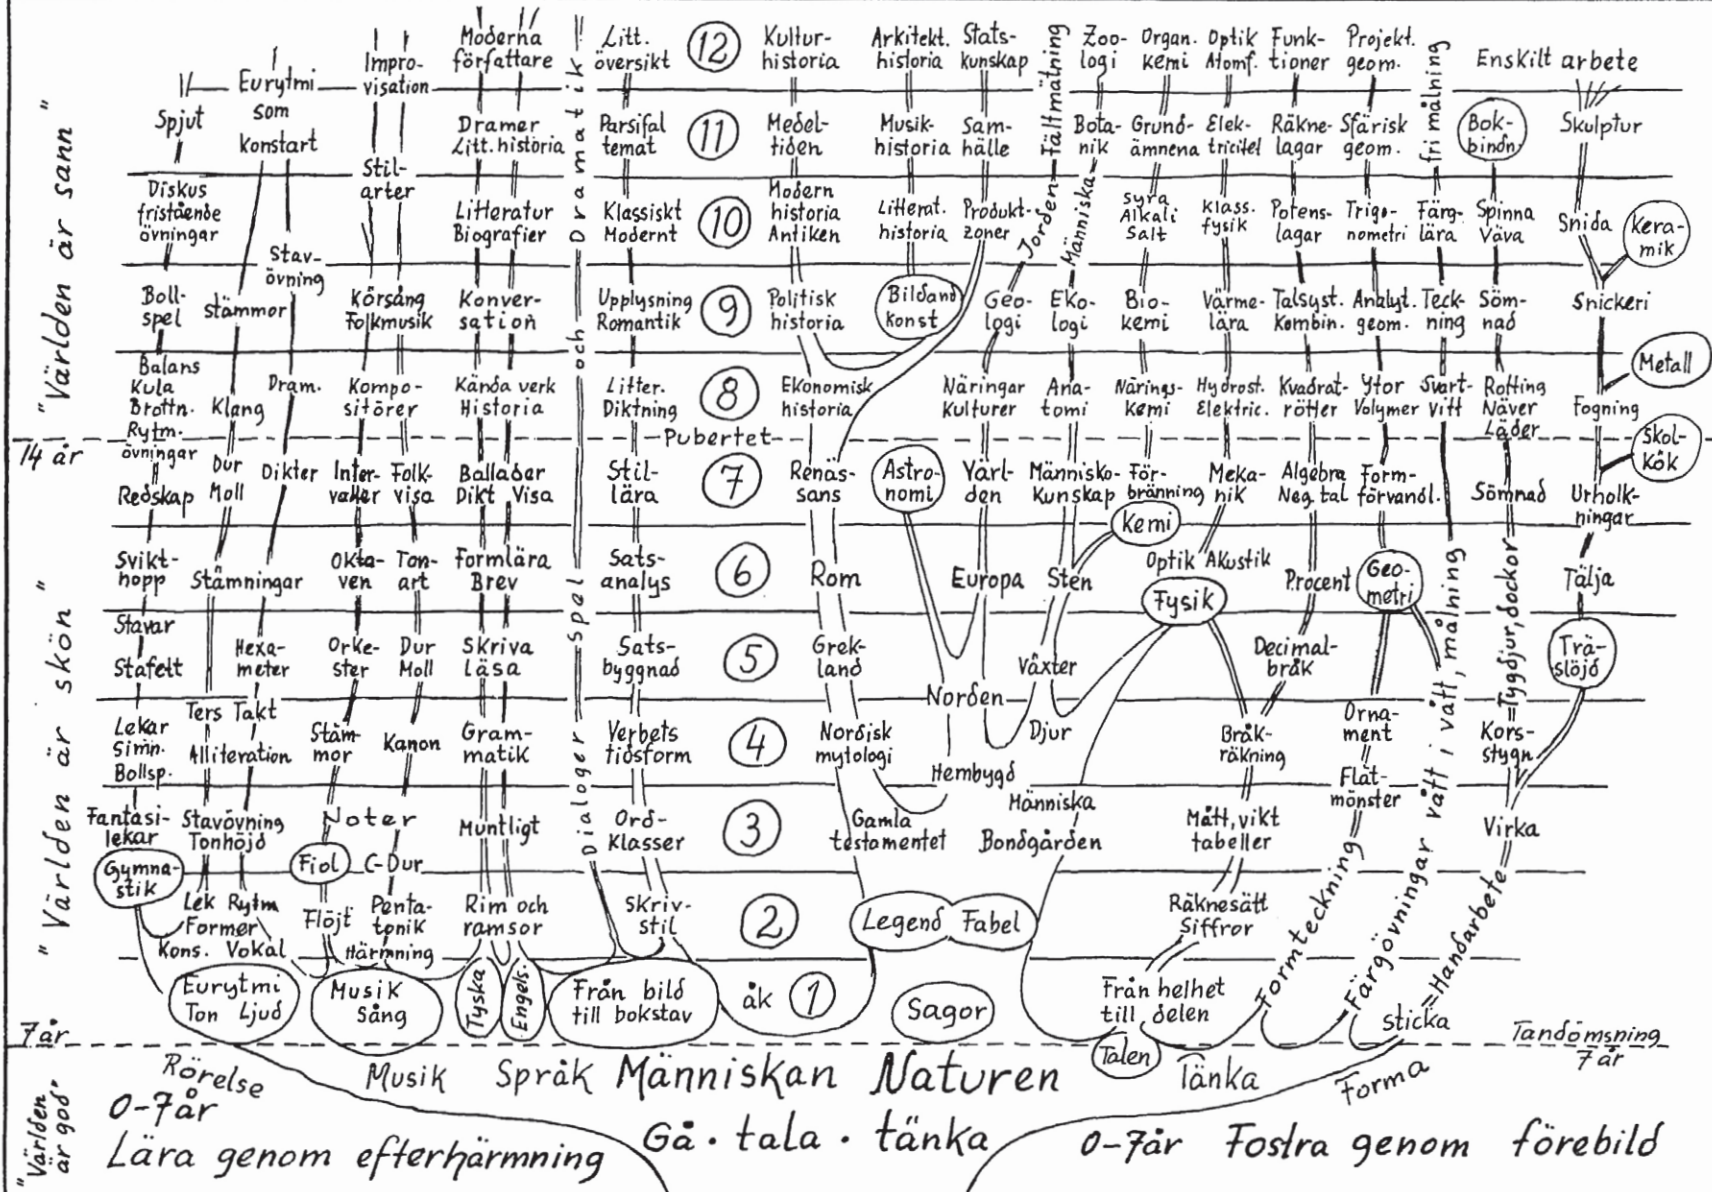 Moderna
författare
Litt.
översikt
12
Kultur-
historia
Arkitekt.
historia
Stats-
kunskap
Zoo-
logi
Organ.
Kemi
Optik
Atomf.
Funk-
tioner
Projekt.
geom.
Enskilt arbete
Impro-
visation
Eurytmi
som
konstart
Spjut
Dramer
Litt. historia
Parsifal
temat
11
Medel-
tiden
Musik-
historia
Sam-
hälle
Bota-
nik
Grund-
ämnena
Elek-
tricitet
Räkne-
lagar
Sfärisk
geom.
Bok-
bindn.
Skulptur
Diskus
fristående
övningar
Stil-
arter
Litteratur
Biografier
Klassiskt
Modernt
10
Modern
historia
Antiken
Litterat.
historia
Produkt-
zoner
Jorden=Fältmätning
Människa
Syra
Alkali
Salt
Klass.
fysik
Potens-
lagar
Trigo-
nometri
Färg-
lära
fri målning
Spinna
Väva
Snida
Kera-
mik
Boll-
spel
Stämmor
Stav-
övning
Körsång
Folkmusik
Konver-
sation
Upplysning
Romantik
9
Politisk
historia
Bildand
konst
Geo-
logi
Eko-
logi
Bio-
kemi
Värme-
lära
Talsyst.
Kombin.
Analyt.
geom.
Teck-
ning
Söm-
nad
Snickeri
Balans
Kula
Brottn.
Rytm.
övningar
Klang
Dram.
Kompo-
sitörer
Kända verk
Historia
Litter.
Diktning
8
Ekonomisk
historia
Näringar
Kulturer
Ana-
tomi
Närings-
Kemi
Hydrost.
Elektric.
Kvadrat-
rötter
Ytor
Volymer
Svart-
vitt
Rotting
Näver
Läder
Fogning
Metall
"Världen är sann"
14 år
Pubertet
Redskap
Dur
Moll
Dikter
Inter-
valler
Folk-
visa
Ballader
Dikt Visa
Stil-
lära
7
Renäs-
sans
Astro-
nomi
Värl-
den
Människo-
Kunskap
För-
bränning
Meka-
nik
Algebra
Neg. tal
Form-
förvandl.
Sömnad
Urholk-
ningar
Skol-
kök
Svikt-
hopp
Stämningar
Okta-
ven
Ton-
art
Formlära
Brev
Sats-
analys
6
Rom
Europa
Sten
Kemi
Optik Akustik
Fysik
Procent
Geo-
metri
Tälja
Stavar
Stafett
Hexa-
meter
Orke-
ster
Dur
Moll
Skriva
läsa
Sats-
byggnad
5
Grek-
land
Norden
Växter
Decimal-
bråk
Trä-
slöjd
Lekar
Simn.
Bollsp.
Ters Takt
Alliteration
Stäm-
mor
Kanon
Gram-
matik
Verbets
tidsform
4
Nordisk
mytologi
Hembygd
Djur
Bråk-
räkning
Orna-
ment
Flät-
mönster
Kors-
stygn
Fantasi-
lekar
Gymna-
stik
Stavövning
Tonhöjd
Noter
Fiol
C-Dur
Muntligt
Ord-
Klasser
3
Gamla
testamentet
Människa
Bondgården
Mått, vikt
tabeller
Virka
Lek Rytm
Former
Kons. Vokal
Flöjt
Penta-
tonik
Härmning
Rim och
ramsor
Skriv-
stil
2
Legend
Fabel
Räknesätt
Siffror
"Världen är skön"
Dialoger spel och Dramatik!!
Eurytmi
Ton Ljud
Musik
Sång
Tyska
Engels.
Från bild
till bokstav
åk 1
Sagor
Från helhet
till delen
Talen
Formteckning
Färgövningar vått i vått, målning
Sticka
=Handarbete
=Tygdjur, dockor
7 år
Tandömsning
7 år
Rörelse
Musik
Språk
Människan
Naturen
Tänka
Forma
"Världen
är god"
0-7år
Lära genom efterhärmning
Gå · tala · tänka
0-7år Fostra genom förebild